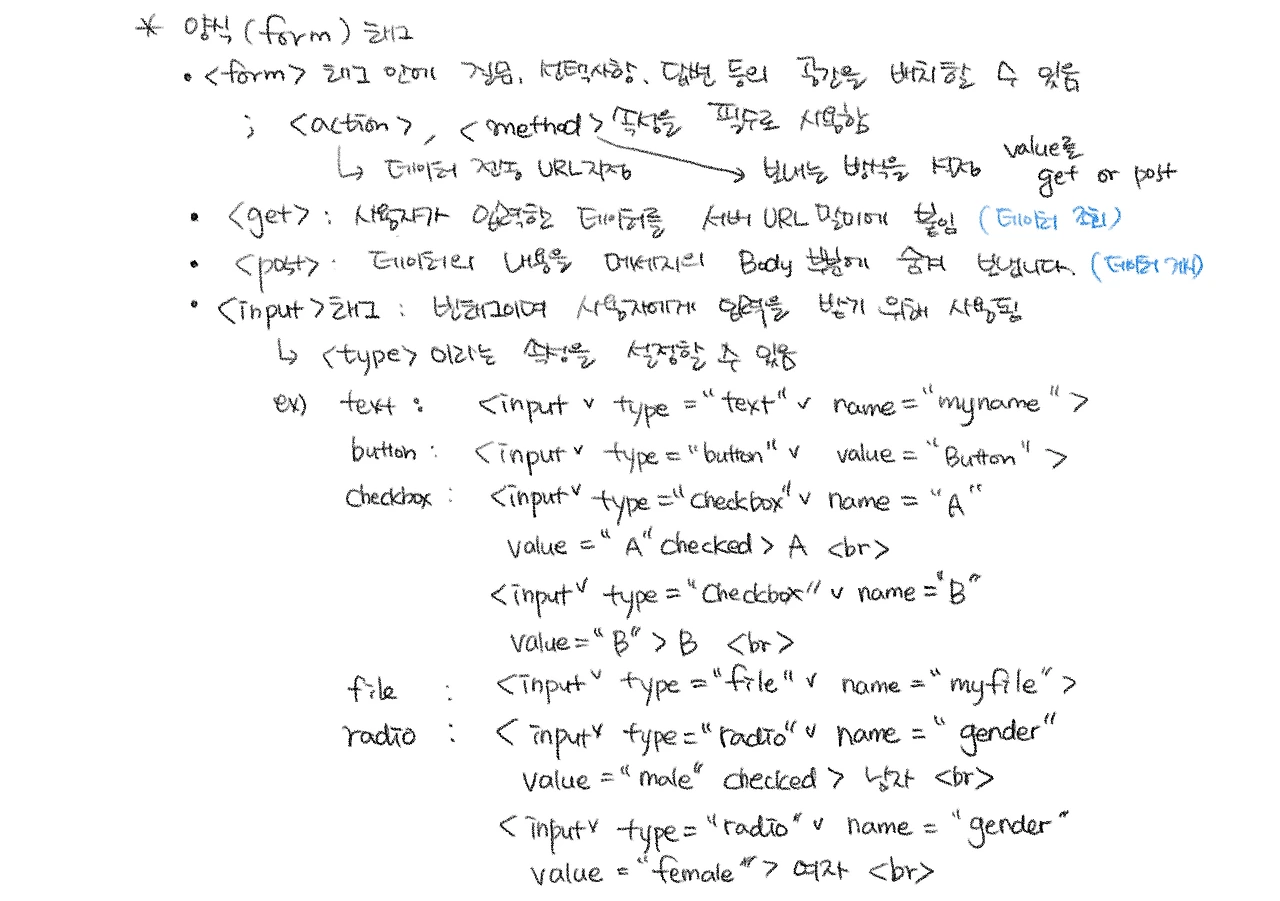 * 양식(form) 태그
• <form> 태그 안에 질문, 선택사항, 답변 등의 공간을 배치할 수 있음
; <action>, <method> 속성을 필수로 사용함
↳ 데이터 전송 URL지정 → 보내는 방식을 설정 value를 get or post
• <get> : 사용자가 입력한 데이터를 서버 URL 말미에 붙임 (데이터 조회)
• <post> : 데이터의 내용을 메세지의 Body 부분에 숨겨 보냅니다. (데이터 게시)
• <input>태그 : 빈태그이며 사용자에게 입력을 받기 위해 사용됨
↳ <type> 이라는 속성을 설정할 수 있음
ex) text : <input ∨ type = "text" ∨ name = "myname">
button : <input ∨ type = "button" ∨ value = "Button">
checkbox : <input ∨ type = "checkbox" ∨ name = "A"
value = "A" checked> A <br>
<input ∨ type = "Checkbox" ∨ name = "B"
value = "B"> B <br>
file : <input ∨ type = "file" ∨ name = "myfile">
radio : <input ∨ type = "radio" ∨ name = "gender"
value = "male" checked> 남자 <br>
<input ∨ type = "radio" ∨ name = "gender"
value = "female"> 여자 <br>